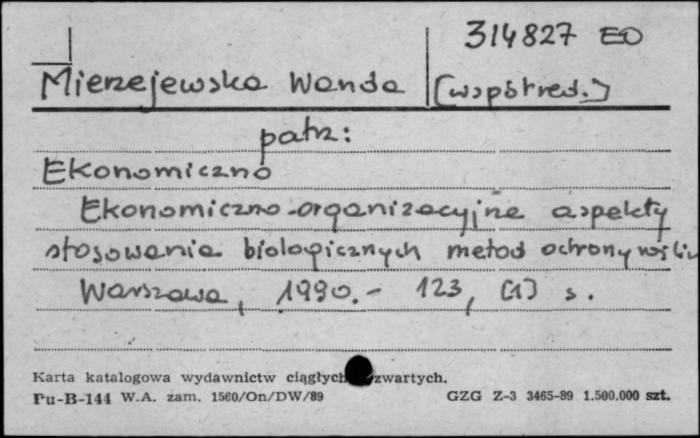 314827 EO
Mierzejewska Wanda [współred.]
patrz:
Ekonomiczno
Ekonomiczno-organizacyjne aspekty
stosowania biologicznych metod ochrony roślin
Warszawa, 1990.- 123, [1] s.
Karta katalogowa wydawnictw ciągłych zwartych.
Pu-B-144 W.A. zam. 1560/On/DW/89 GZG Z-3 3465-89 1.500.000 szt.